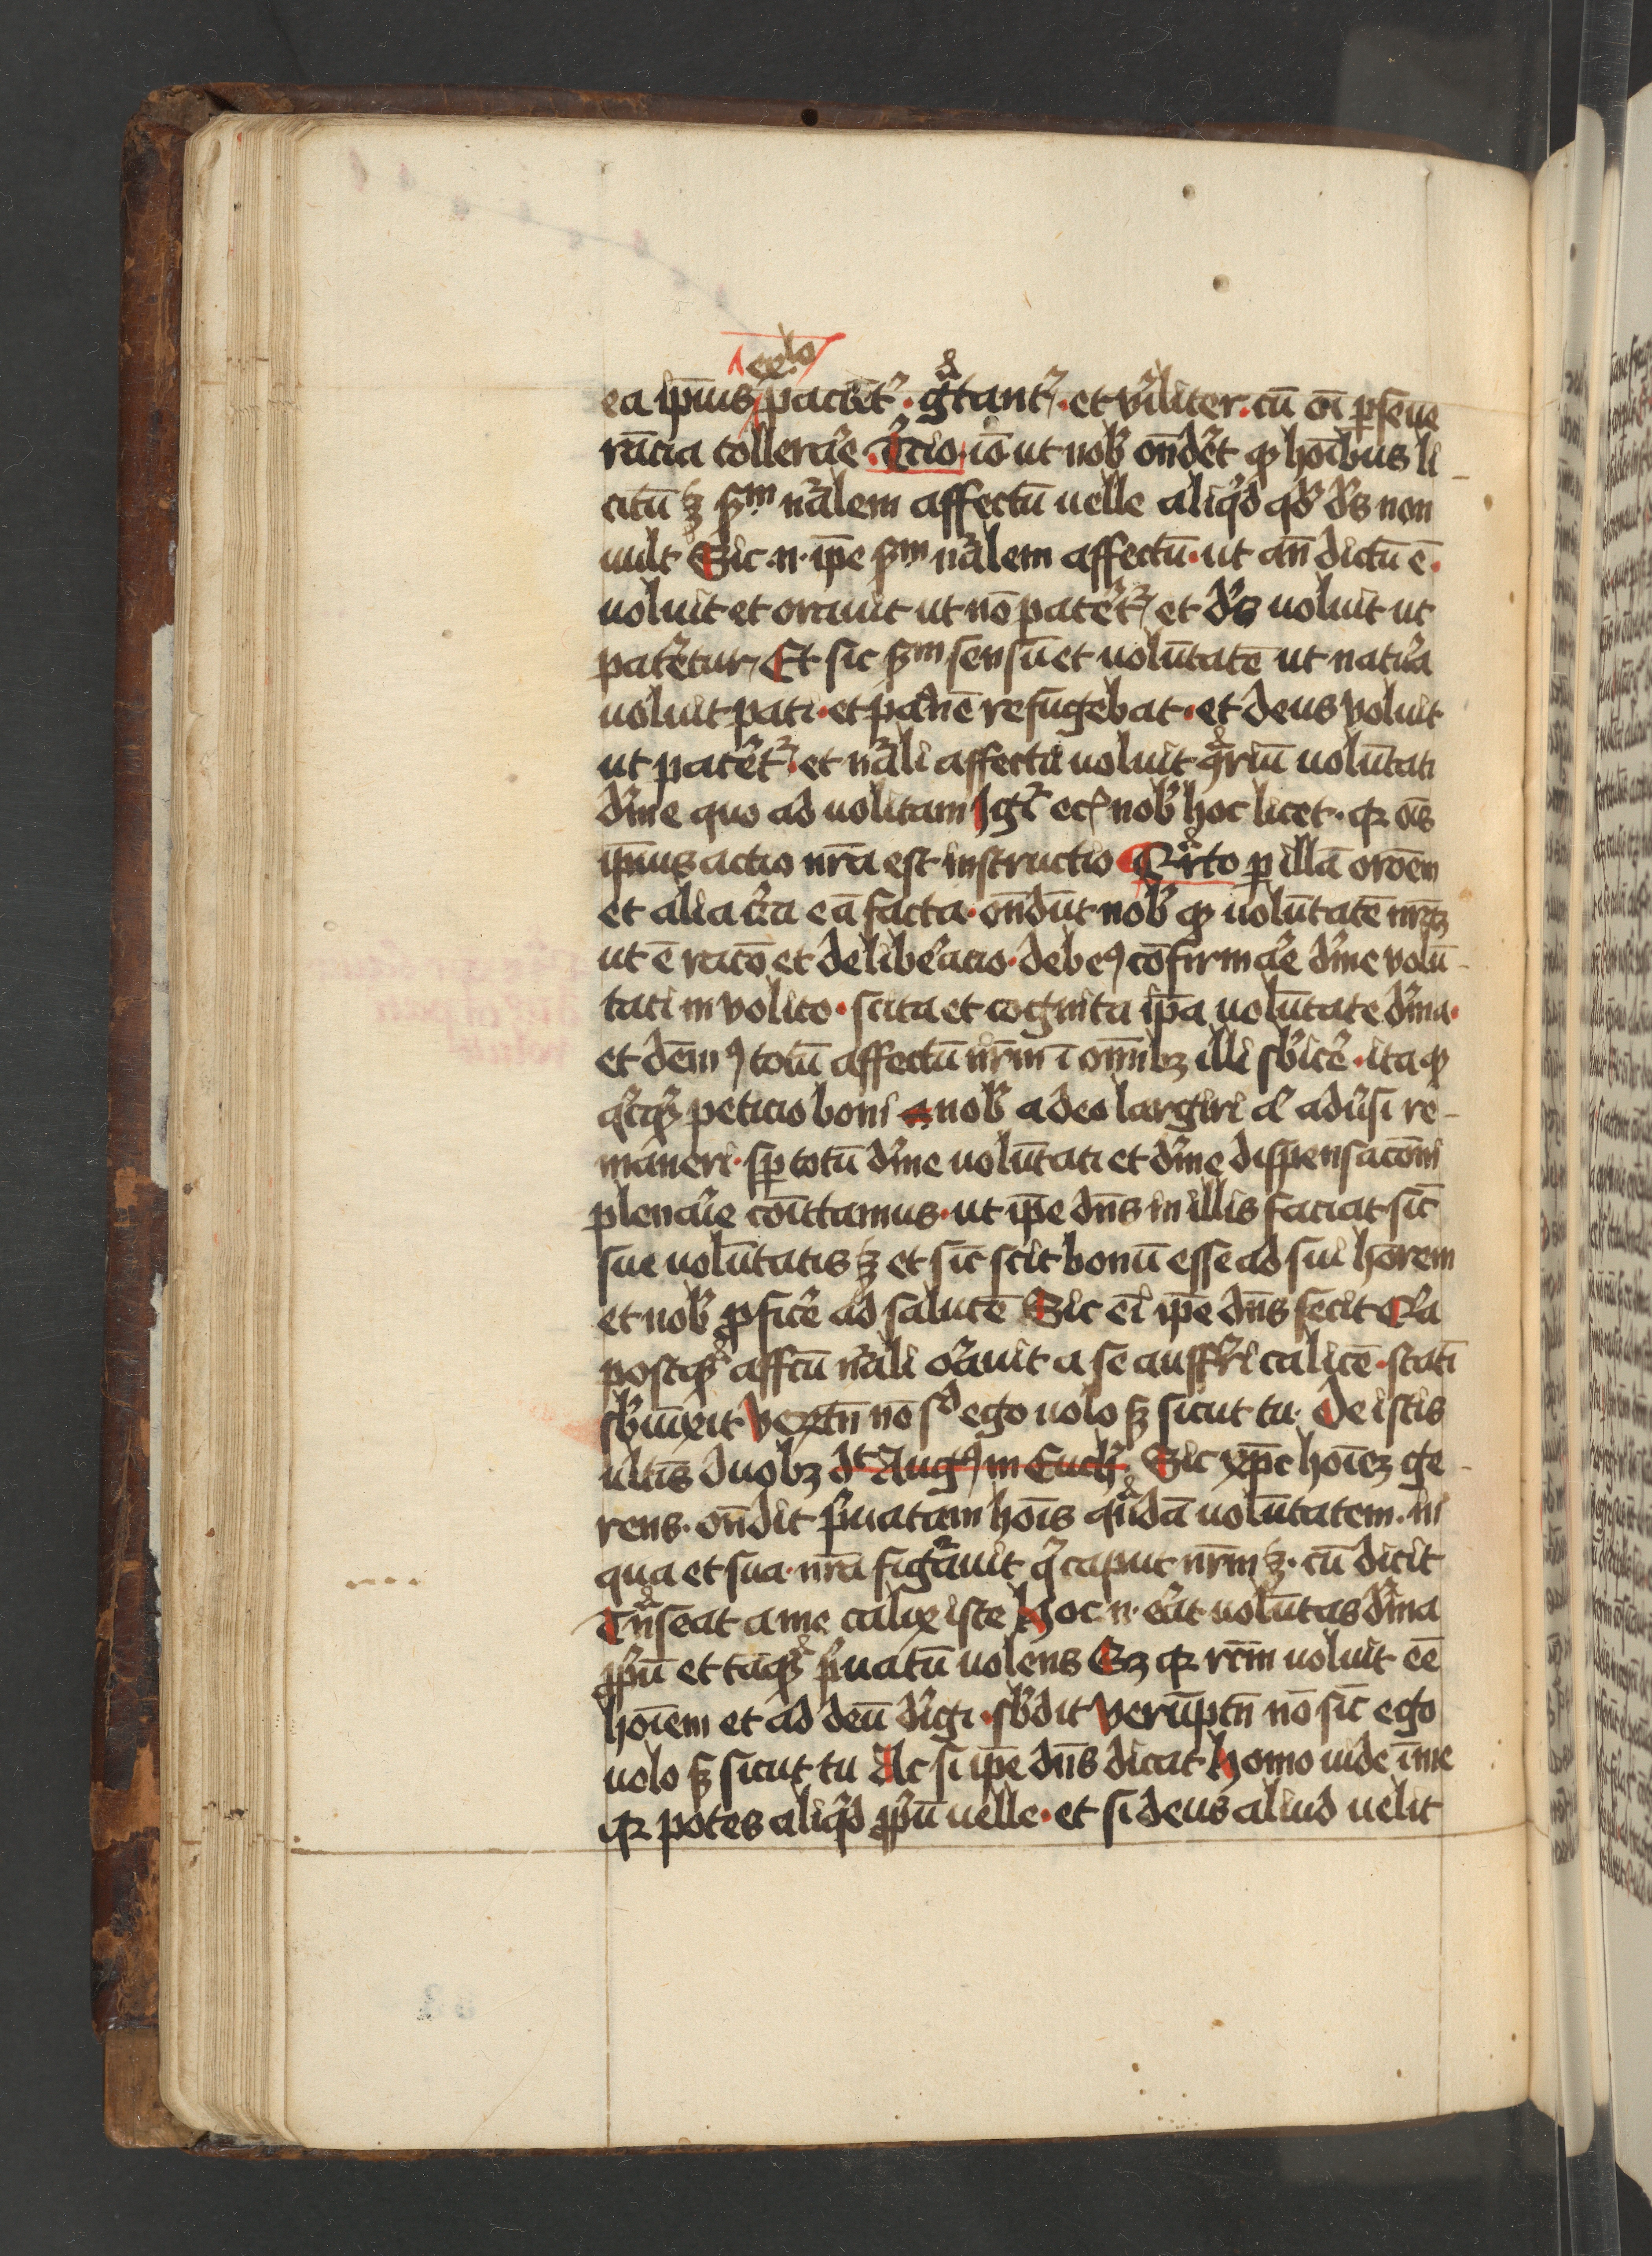 exlo
ea ip̄ius pacient᷑ · gͣtant᷑ · et vi᷑liter · cū oī p̱seue
rācia tollerāe · Tcīo · iō ut nob᷑ on̄det ꝙ hoībus li
citū ꝫ ẜm nālem affectū uelle aliqͥd qd̓ ds̄ non
uult Sic · n · ip̄e ẜm nālem affectū · ut an̄ dictū ē ·
uoluit et orauit ut nō patet᷑ et ds̄ uoluit ut
patētur Et sic ẜm sensū et uolūtatē ut natūa
uoluit pati · et penē refugebat · et deus voluit
ut patēt᷑ · et nāli affectu uoluit ꝯͣriū uolūtati
dīne quo ad uolitam Igit᷑ ec̄ nob᷑ hoc licet · qꝛ oīs
ip̄ius actio nr̄a est instructio Qͣrto p̱ illā orōem
et alia c̄ca eā facta · on̄dūt nob᷑ ꝙ uolūtatē nr̄aꝫ
ut ē racō et delibēacio · debeꝰ cōfirmāe dīne volū
tati in volito · scita et cognita ip̄a uolūtate dīna ·
et dēmꝰ totū affectū nr̄m ī om̄ibꝫ illi sb̓icē · ita ꝙ
qͥcqͥd peticio boni nob᷑ a deo largiri ul̓ adūsi re
maneri · sp̱ totū dīne uolūtati et dīne dispensacōni
plenāie cōīttamus · ut ip̄e dn̄s in illis faciat sic̄
sue uolūtatis ꝫ et sic̄ scit bonū esse ad sui ho᷑rem
et nob᷑ ꝓficē ad salutē Sic eī ip̄e dn̄s fecit Q̄a
postqͣ affc̄tū nāli oāuit a se auffer̄i calicē · statī
sb̓iūxit vexptn̄ nō sͥc ego uolo sꝫ sicut tu · De istis
ultīs duobꝫ d᷑t Augꝰ in Euch᷑ Sic xp̄c hoīeꝫ ge
rens · on̄dit p̓uatam hoīs qͣndā uolūtatem · in
qua et sua · nr̄a figāuit qͥ caput nr̄m ꝫ · cū dicit
Tͣnseat a me calix iste hoc n · eāt uolūtas dīna
ꝓpͥū et tāqͣ p̓uatū uolens Sꝫ qꝛ rc̄m uoluit ee᷑
hoīem et ad deū dīgi · sb̓dit verūptn̄ nō sic̄ ego
uolo sꝫ sicut tu Ac si ip̄e dn̄s dicat homo uide ī me
qꝛ potes aliqͥd ꝓpͥū uelle · et si deus aliud uelit